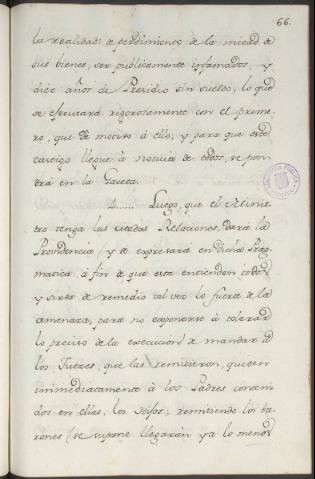 66.
la realidad: de perdimiento de la mitad de
sus bienes, ser publicamente infamados, y
diez años de Presidio sin sueldo, lo que
se ejecutará rigorosamente con el prime-
ro, que dé motivo á ello; y para que este
castigo llegue á noticia de todos, se pon-
drá en la Gaceta.
Luego, que el Minis-
tro tenga las citadas Relaciones, dará la
Providencia (y se expresará en dicha Prag-
matica, á fin de que esta entiendan todos
y sirva de remedio tal vez lo fuerte de la
amenaza, para no exponerse á tolerar
lo preciso de la execucion) de mandar á
los Jueces, que las remitieron, quiten
inmediatamente á los Padres conteni-
dos en ellas, los Hijos; remitiendo los ba-
rones (se supone llegarán ya lo menos